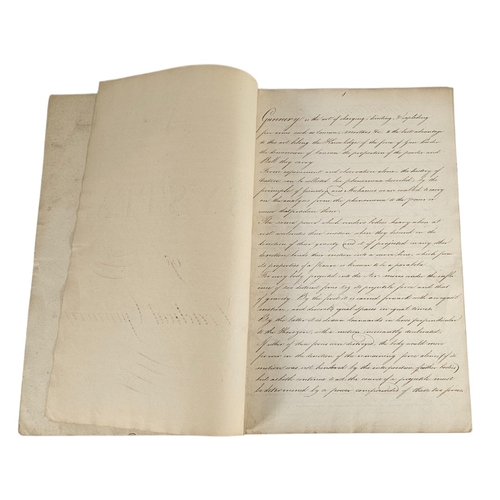 Gunnery is the art of charging, directing, & exploding
fire arms such as Cannon, Mortars &c to the best advantage
to this art belong the Knowledge of the force of Gun Powder
the dimensions of Cannon the proportion of the powder and
Ball they carry
From experiment and observation alone the
can be collected the phenomena
principles of and
on the analysis from the phenomena to the
The same power which makes bodies heavy when at
rest accelerates their motion when they descend in the
direction of their gravity and if projected in any other
direction bends their motion into a curve line, which from
its properties is known to be a parabola
Every body projected into the Air moves under the influ
ence of two distinct forces viz its projectile force and that
of gravity. By the first it is carried forward with an equal
motion, and describes equal spaces in equal times
By the latter it is drawn downwards in lines perpendicular
to the Horizon with a motion incessantly accelerated.
If either of these forces were destroyed, the body would move
forever in the direction of the remaining force alone (if its
motion was not hindered by the interposition of other bodies)
but as both continue to act the course of a projectile must
be determined by a power compounded of those two forces